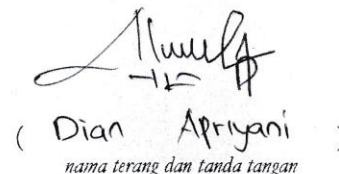 ( Dian Apriyani )
nama terang dan tanda tangan